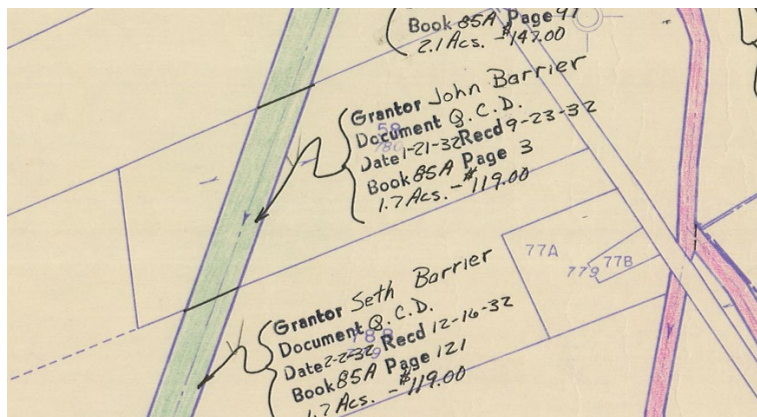 Book 85A Page 91
2.1 Acs. - $147.00
Grantor John Barrier
Document Q.C.D.
58
780
Date 1-21-32 Recd 9-23-32
Book 85A Page 3
1.7 Acs. - $119.00
77A
779 77B
Grantor Seth Barrier
Document Q.C.D.
Date 2-2-32 Recd 12-16-32
Book 85A Page 121
1.7 Acs. - $119.00